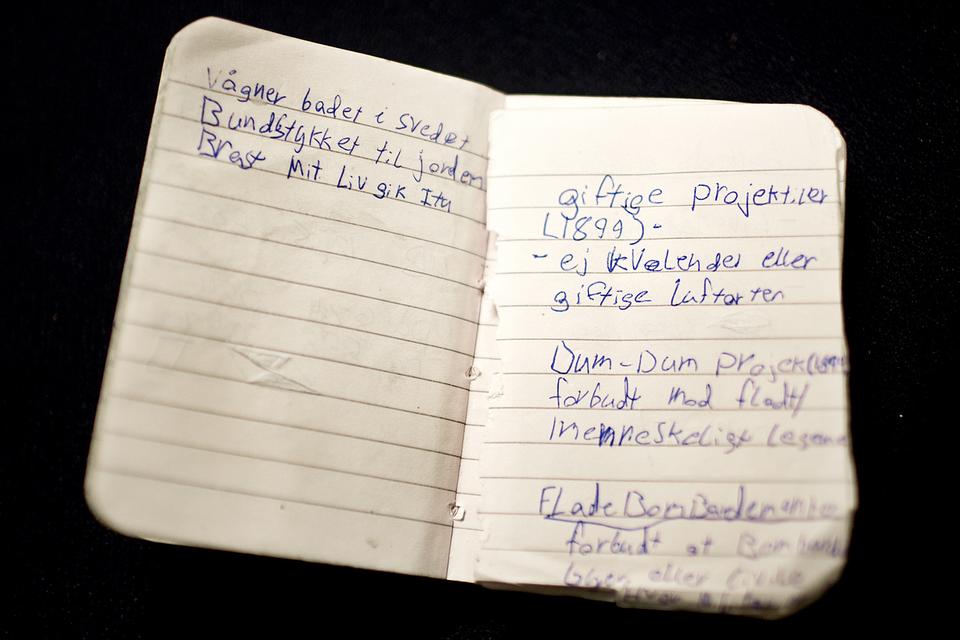 Vågner badet i svedet
Bundstykket til jorden
Brast Mit Liv gik Itu
giftige projektiler
(1899)-
- ej kvælender eller
giftige luftarter
Dum-Dum projek(1899
forbudt mod fladt/
menneskeligt legeme
FLade BomBardementer
forbudt at Bombard
byer eller civile